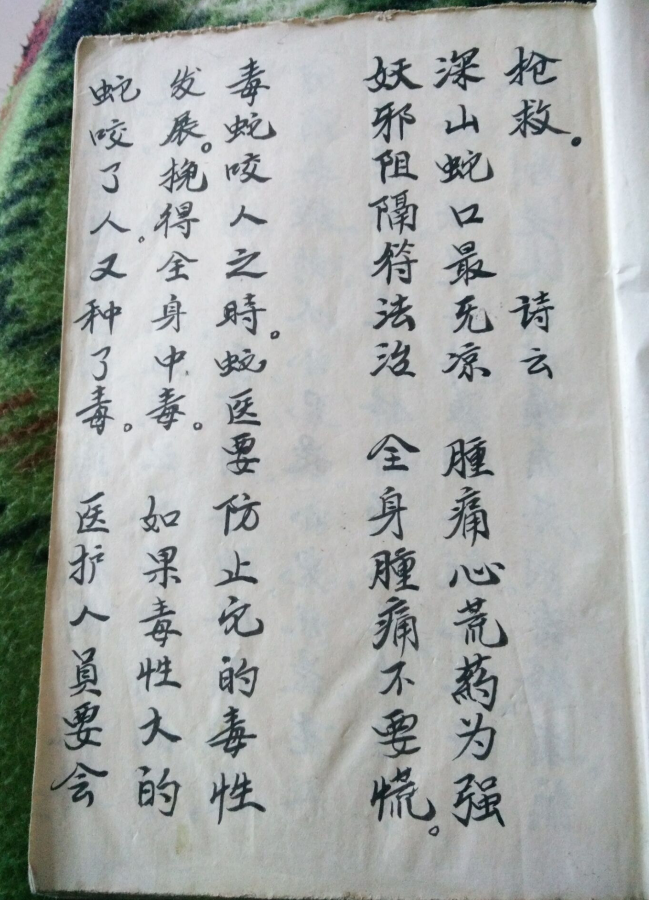 枪救。 詩云
深山蛇口最无凉 腫痛心荒药为强
妖邪阻隔符法治 全身腫痛不要慌。
毒蛇咬人之時。蛇医要防止它的毒性
发展。挽得全身中毒。 如果毒性大的
蛇咬了人。又种了毒。 医护人員要会